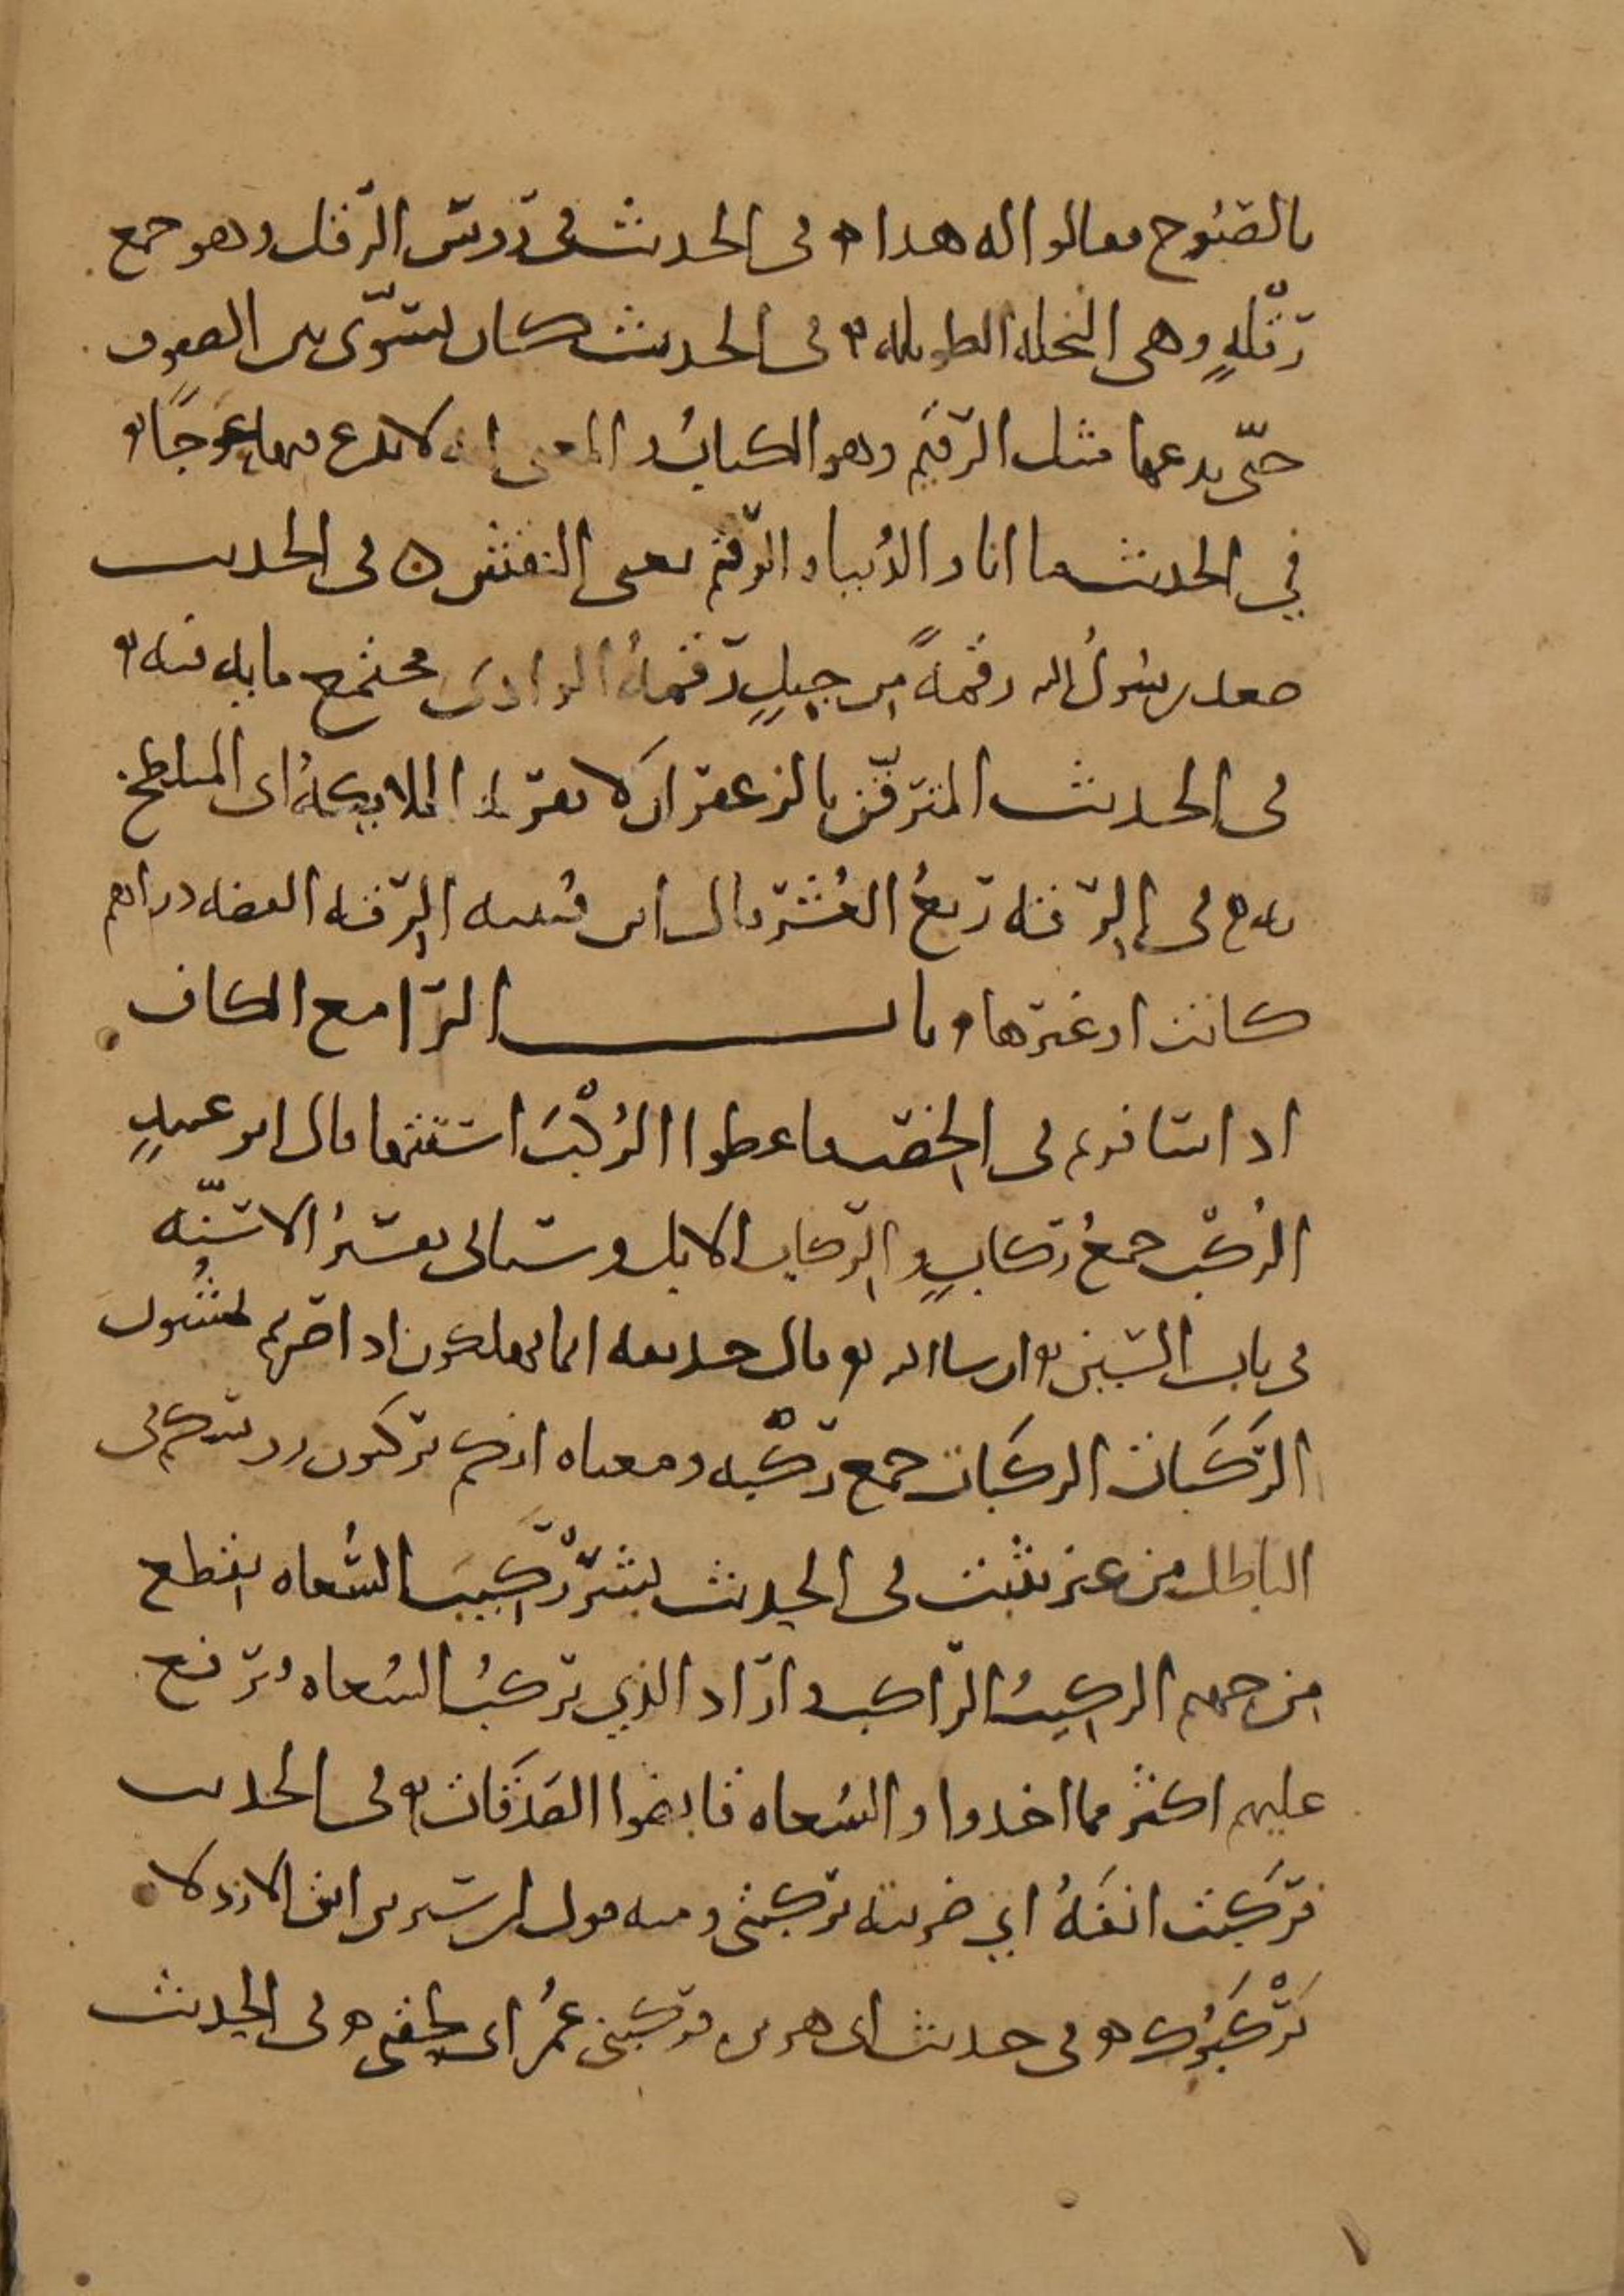 بالصبوح فقالوا له هذا ه في الحديث في رؤس الرَّقل وهو جمع
رقلةٍ وهي النخلة الطويلة ه في الحديث كان يسوّى بين الصفوف
حتّى يدعها مثل الرقيم وهو الكتاب والمعنى انه لا يدع فيها عوجًا ه
في الحديث ما انا والدُنيا والرقم يعنى النقش ه في الحديث
صعد رسُولُ الله رقمةً من جبلٍ رقمةُ الوادى مجتمع مايه فيه ه
في الحديث المترقّن بالزعفران لا تقربه الملايكةُ اى المتلطخ
به ه في الرِّقة رُبعُ العُشر قال ابن قتيبة الرِّقة الفضة دراهم
كانت او غيرها ه باب الرا مع الكاف
اذا سافرتم في الخصب فاعطوا الرُكْبَ اسنتها قال ابو عبيدٍ
الرُكُب جمعُ ركابٍ والرِّكاب الابل وستاتى تفسيرُ الاسِنّه
في باب السين ان شا الله ه قال حذيفة انما تهلكون اذا صرتم تمشُون
الرَّكَبات الركَبات جمع رَكْبه ومعناه انكم تركبون روسكم في
الباطل من غير تثبت في الحديث بشّرْ رَكِيبَ السُّعاه بقطع
من جهنم الركيبُ الرّاكب واراد الذي يركبُ السُعاه ويرفع
عليهم اكثر مما اخذوا والسُعاه قابضوا الصَدَقات ه في الحديث
فرَكبْت انفَهُ اي ضربته بركبتي ومنه قول ابن سيرين اتق الازد لا
يَرْكُبُوك ه في حديث ابى هريره فركبني عُمرُ اى لحقنى ه في الحديث